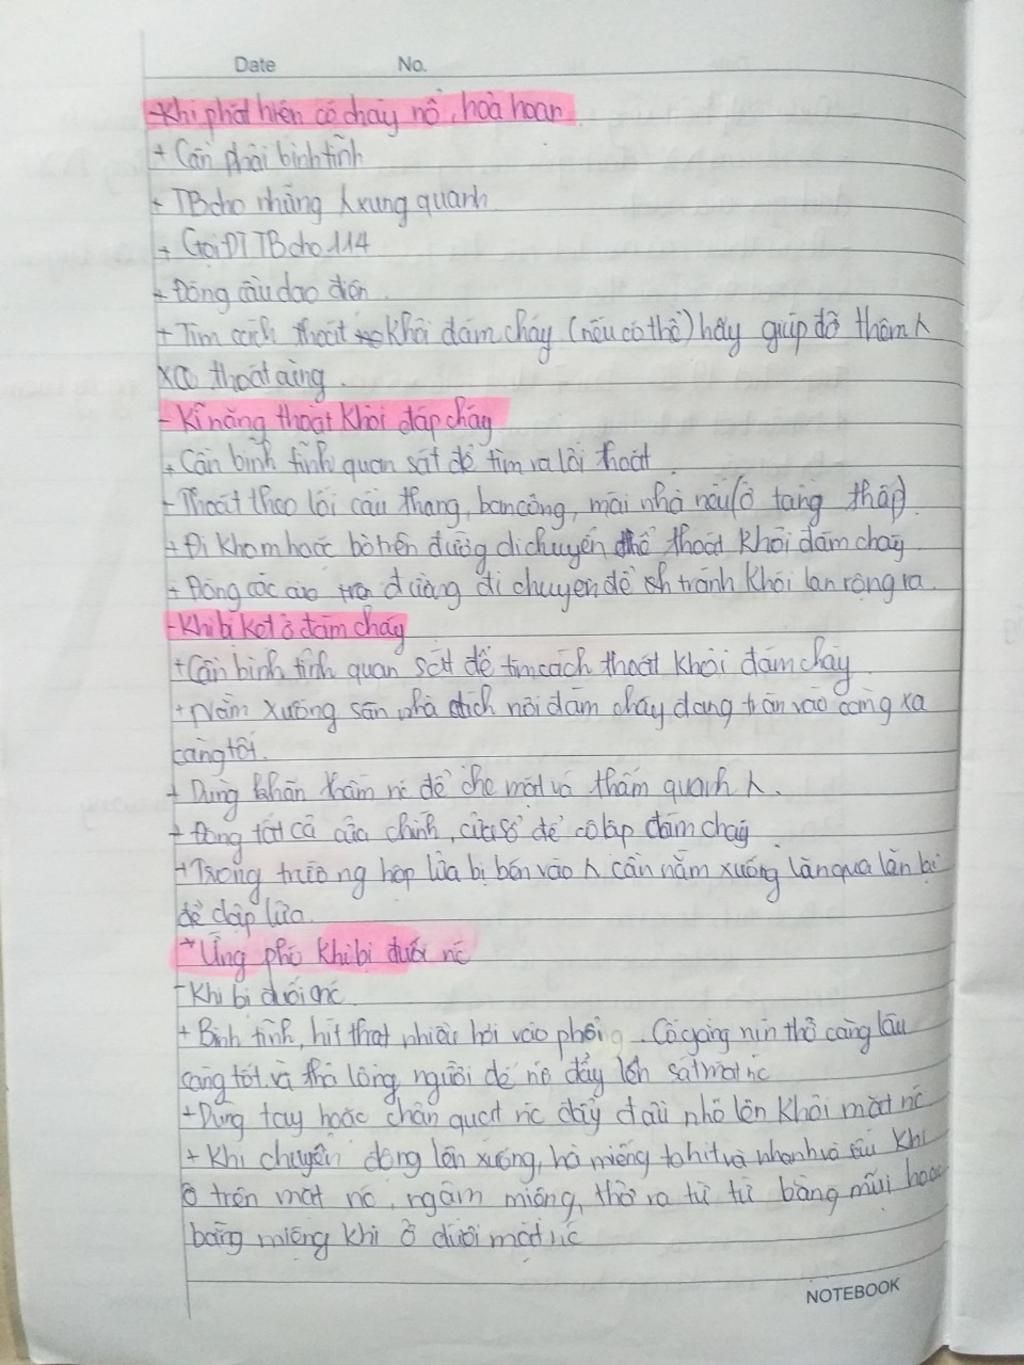 Date No.
-Khi phát hiện có cháy nổ, hoả hoạn
+ Cần phải bình tĩnh
+ TB cho những λ xung quanh
+ Gọi ĐT TB cho 114
+ Đóng cầu dao điện
+ Tìm cách thoát khỏi đám cháy (nếu có thể) hãy giúp đỡ thêm λ
thoát
- Kĩ năng thoát khỏi đáp cháy
+ Cần bình tĩnh quan sát để tìm ra lối thoát
- Thoát theo lối cầu thang, ban công, mái nhà nếu (ở tầng thấp)
+ Đi khom hoặc bò trên đường di chuyển để thoát khỏi đám cháy
+ Đóng các đường di chuyển để tránh khói lan rộng ra
-Khi bị kẹt ở đám cháy
+ Cần bình tĩnh quan sát để tìm cách thoát khỏi đám cháy
+ Nằm xuống sàn nhà cách nơi đám cháy đang tràn vào càng xa
càng tốt.
+ Dùng khăn thấm nc để che mặt và thấm quanh λ.
+ Đóng tất cả cửa chính, cửa sổ để cô lập đám cháy
+ Trong trường hợp lửa bị bén vào λ cần nằm xuống lăn qua lăn lại
để dập lửa.
* Ứng phó khi bị đuối nc
- Khi bị đuối nc
+ Bình tĩnh, hít thật nhiều hơi vào phổi. Cố gắng nín thở càng lâu
càng tốt và thả lỏng người để nc đẩy lên sát mặt nc
+ Dùng tay hoặc chân quạt nc đẩy đầu nhô lên khỏi mặt nc
+ Khi chuyển động lên xuống, há miệng to hít và nhanh và sâu khi
ở trên mặt nc, ngậm miệng, thở ra từ từ bằng mũi hoặc
bằng miệng khi ở dưới mặt nc
NOTEBOOK